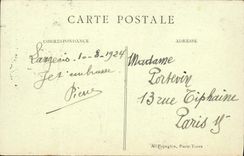 CARTE POSTALE
CORRESPONDANCE
ADRESSE
1-8-1924
Je t'embrasse
Pierre
Madame
Portevin
13 rue Tiphaine
Paris